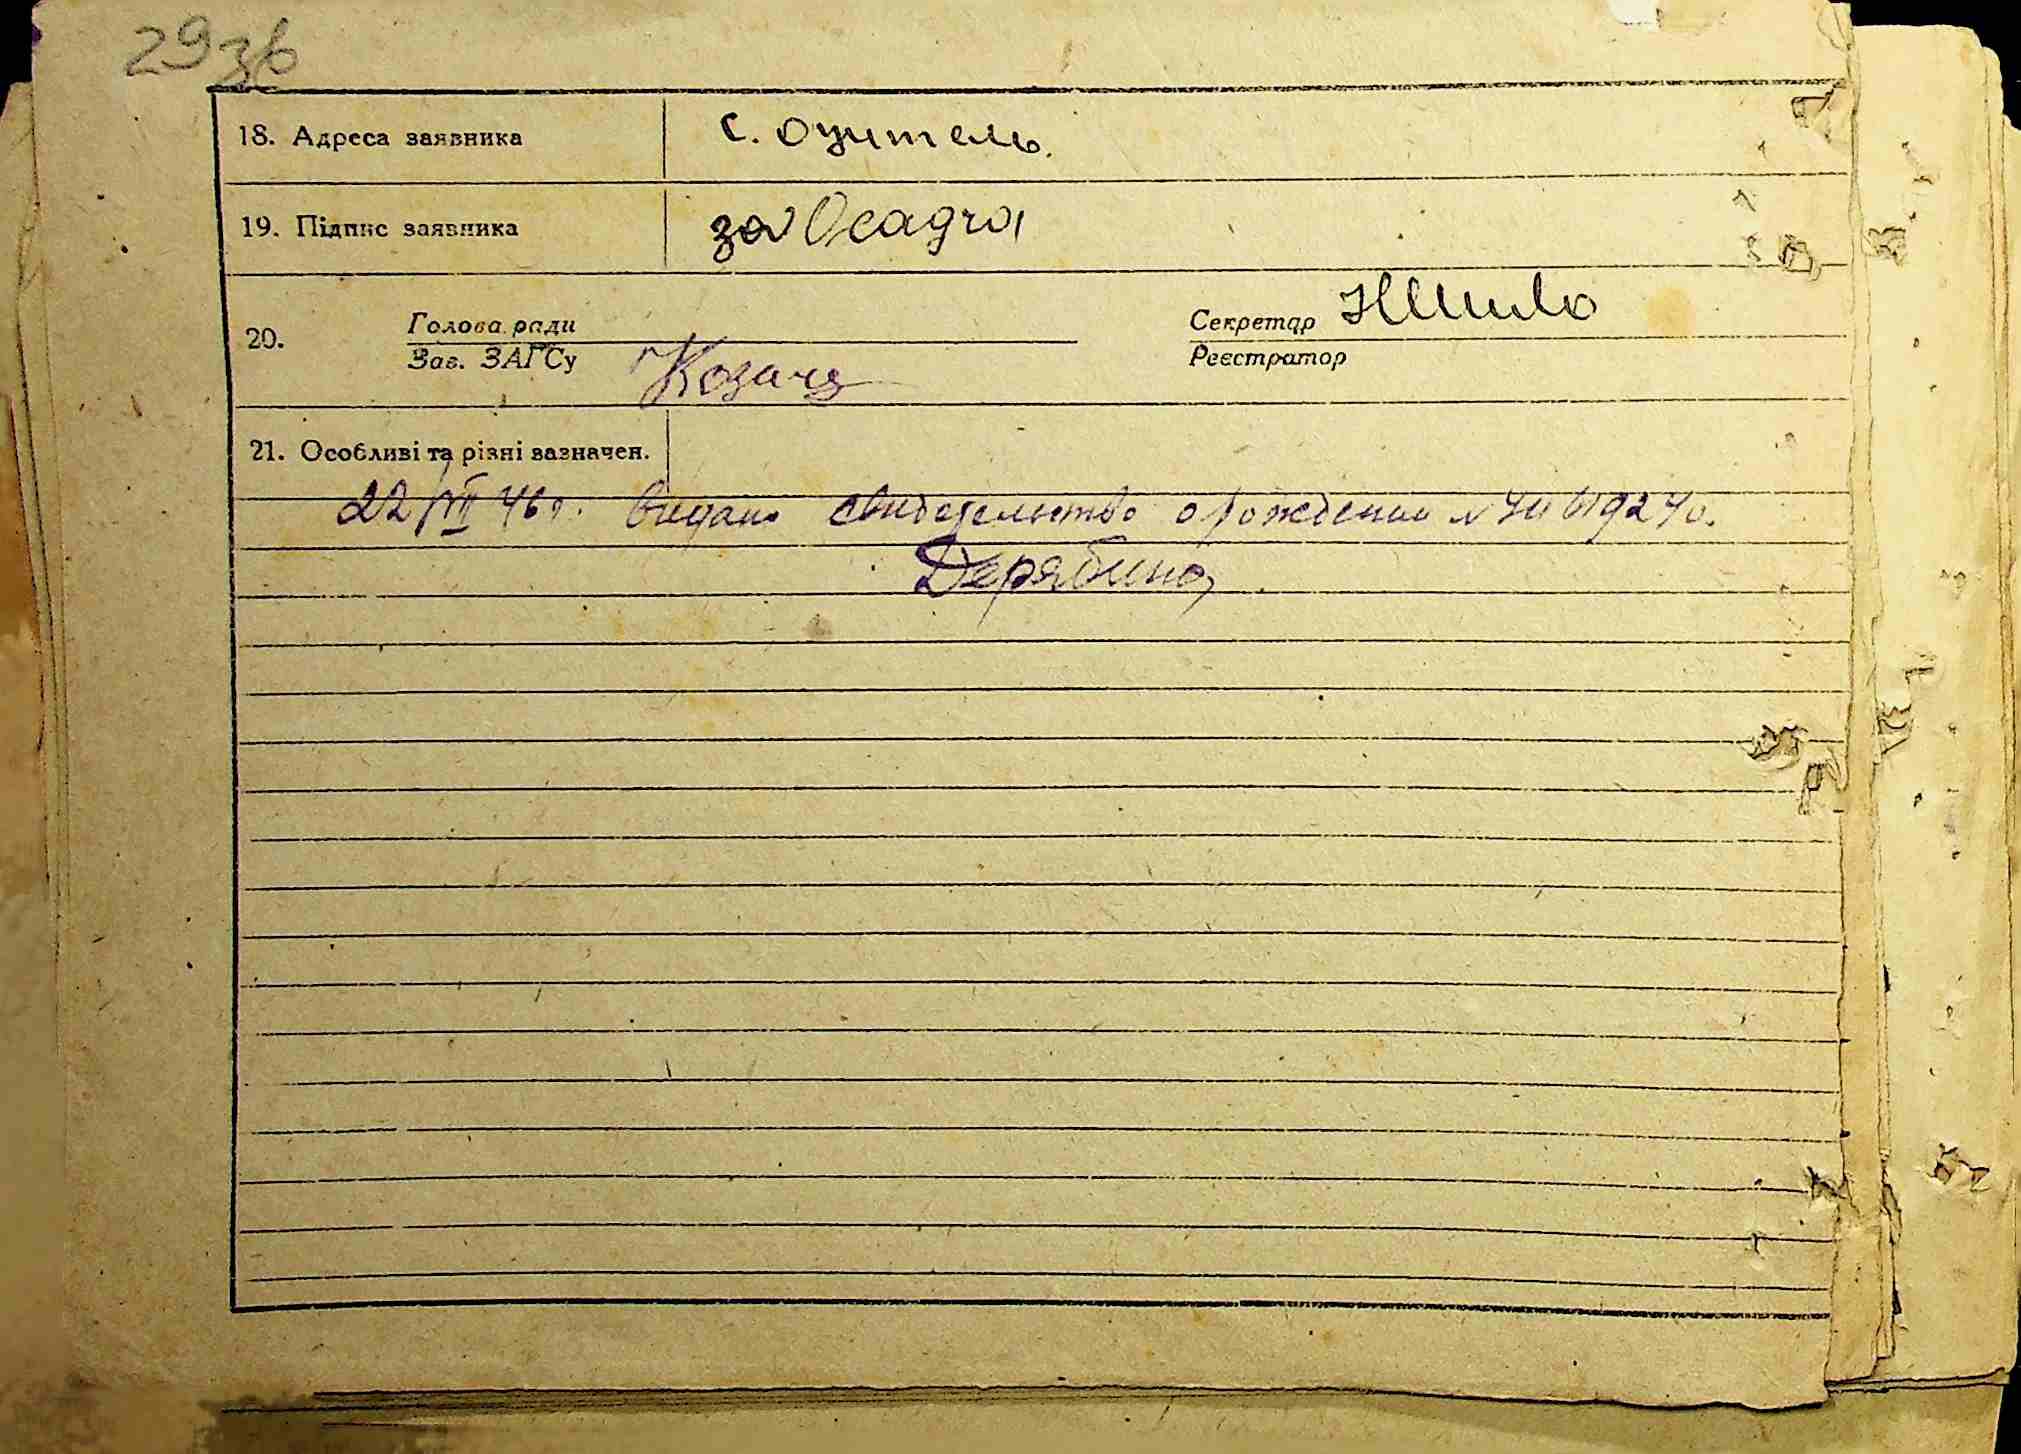 29зв
18. Адреса заявника с. Озитель.
19. Підпис заявника за Осадча
20. Голова ради Секретар НШило
Зав. ЗАГСу Козача Реєстратор
21. Особливі та різні вазначен.
22/VII 46 г. видано свидетельство о рождении №
Дерябина